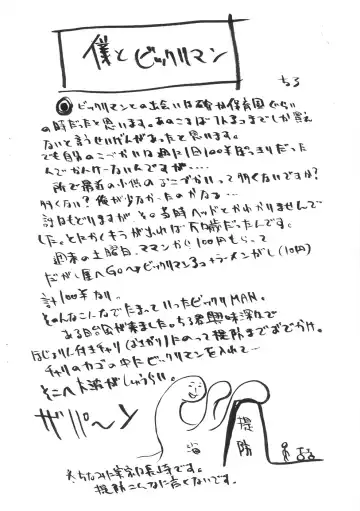 僕とビックリマン
ちろ
ビックリマンとの出会いは確か保育園ぐらい
の時だったと思います。あのころは1人3つまでしか買え
ないと言うせいげんがあったと思います。
でも自分のこづかいは週に1回100¥ぽっきりだった
んでかんけーないんですが…。
所で最近の小供のおこづかいって多くないですか?
多くない?俺が少なかったのかなぁ…
計はもどりますが、その当時ヘッドとかわかりませんで
した。とにかくキラが出れば万歳だったんです。
週末の土曜日、ママンから100円もらって
だがし屋へGO→ビックリマン3コ+ラーメンがし(10円)
計100¥なり。
そんなこんなでたまっていったビックリMAN。
ある日台風が来ました。ちろ君興味深々で
ほじょりん付きチャリ(おさがり)にのって堤防までおでかけ。
チャリのカゴの中にビックリマンを入れて…
そこへ大波がしゅうらい。
ザパ〜ン
海
堤防
※ちなみに実家は長崎です。
堤防こんなに高くないです。